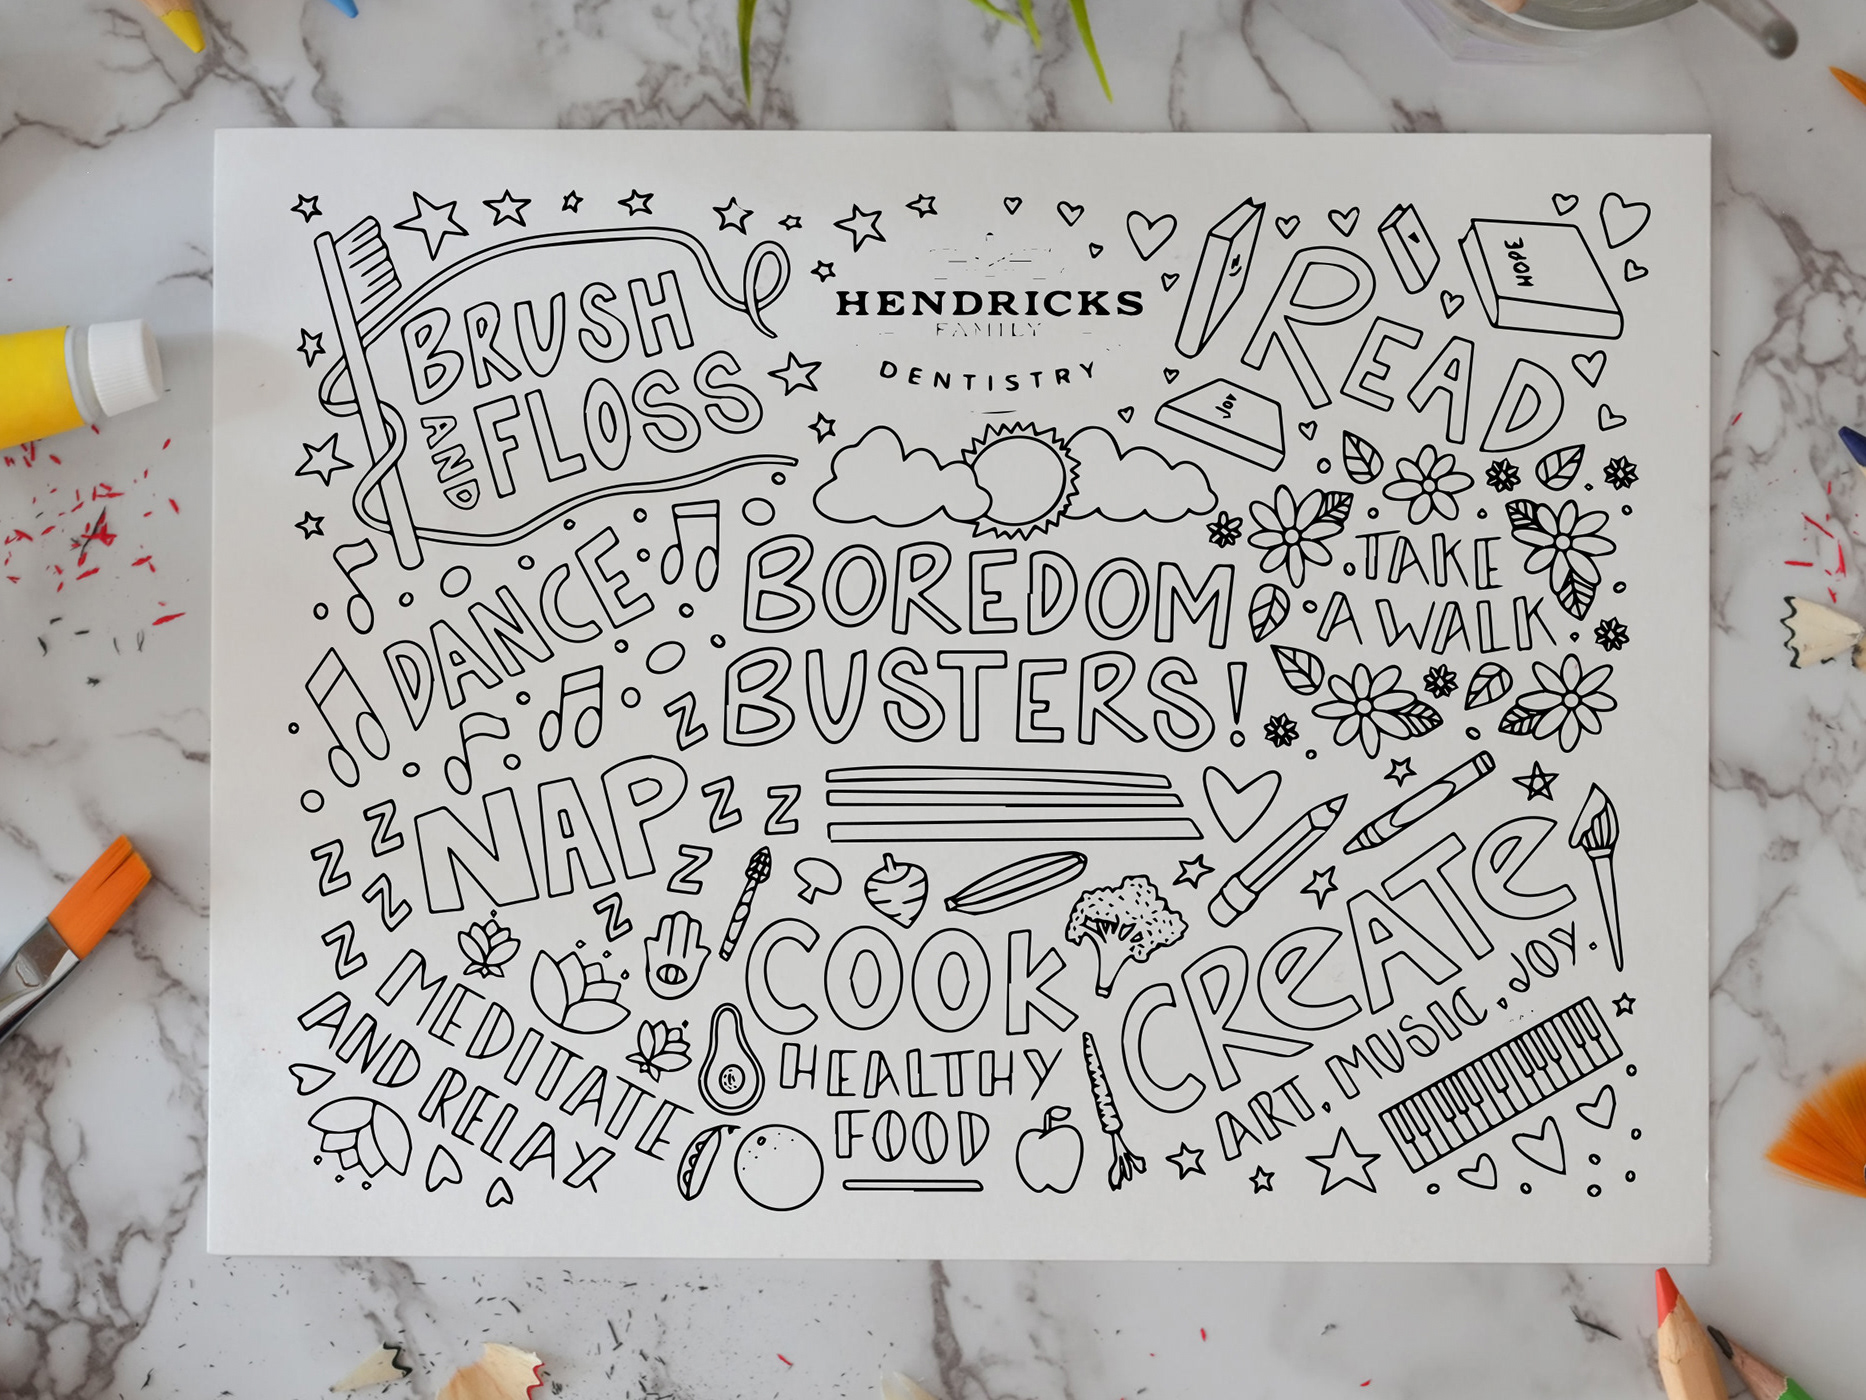 BRUSH
AND
FLOSS
HENDRICKS
FAMILY
DENTISTRY
READ
HOPE
JOY
DANCE
BOREDOM
BUSTERS!
TAKE
A WALK
NAP
Z Z Z
Z Z Z
Z Z Z
Z
MEDITATE
AND RELAX
COOK
HEALTHY
FOOD
CREATE
ART, MUSIC, JOY.